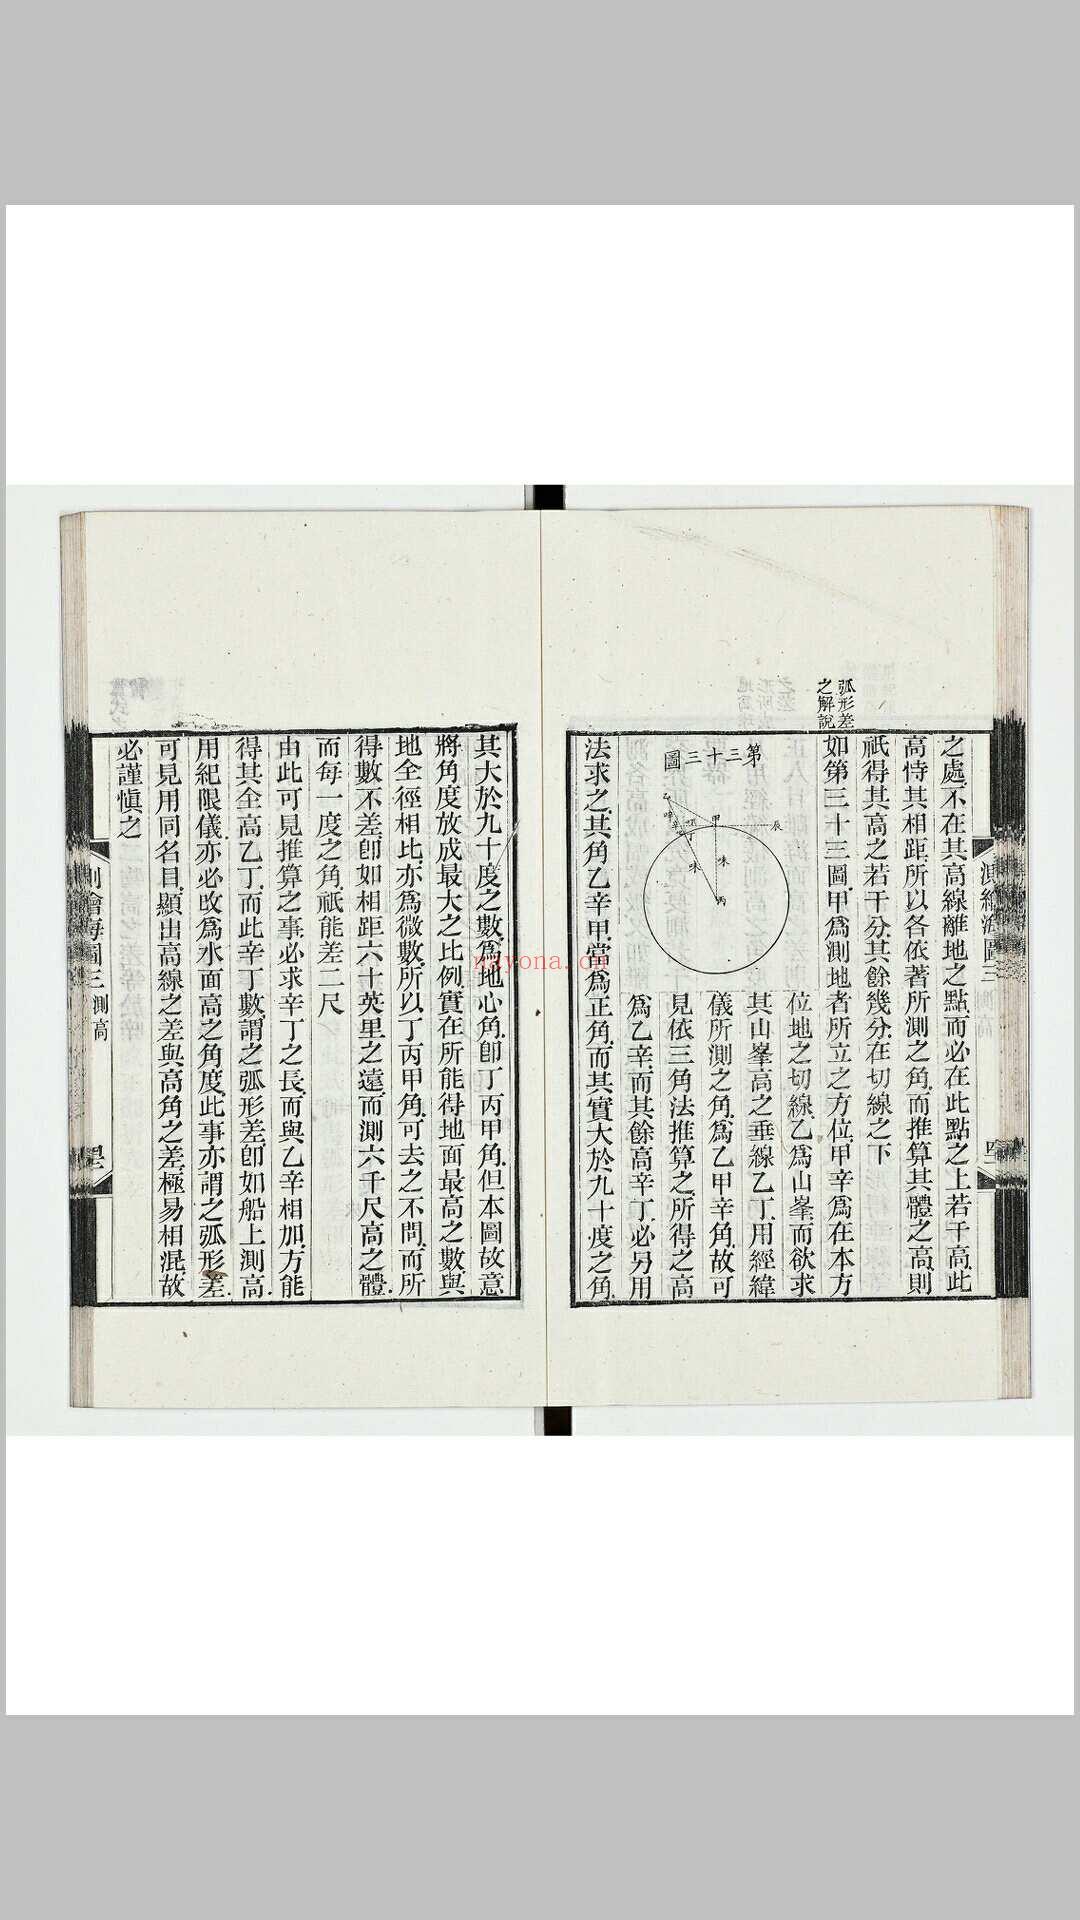 測繪海圖三 測高
之處不在其高線離地之點而必在此點之上若干高此
高恃其相距所以各依著所測之角而推算其體之高則
祇得其高之若干分其餘幾分在切線之下
弧形差
之解說
如第三十三圖甲爲測地者所立之方位甲辛爲在本方
位地之切線乙爲山峯而欲求
其山峯高之垂線乙丁用經緯
儀所測之角爲乙甲辛故可
見依三角法推算之所得之高
爲乙辛而其餘高辛丁必另用
第三十三圖
乙
甲
辰
辛
丁
味
味
丙
法求之其角乙辛甲當爲正角而其實大於九十度之角
其大於九十度之數爲地心角卽丁丙甲角但本圖故意
將角度放成最大之比例實在所能得地面最高之數與
地全徑相比亦爲微數所以丁丙甲角可去之不問而所
得數不差卽如相距六十英里之遠而測六千尺高之體
而每一度之角祇能差二尺
由此可見推算之事必求辛丁之長而與乙辛相加方能
得其全高乙丁而此辛丁數謂之弧形差卽如船上測高
用紀限儀亦必改爲水面高之角度此事亦謂之弧形差
可見用同名目顯出高線之差與高角之差極易相混故
必謹愼之
測繪海圖三 測高
nayona.cn